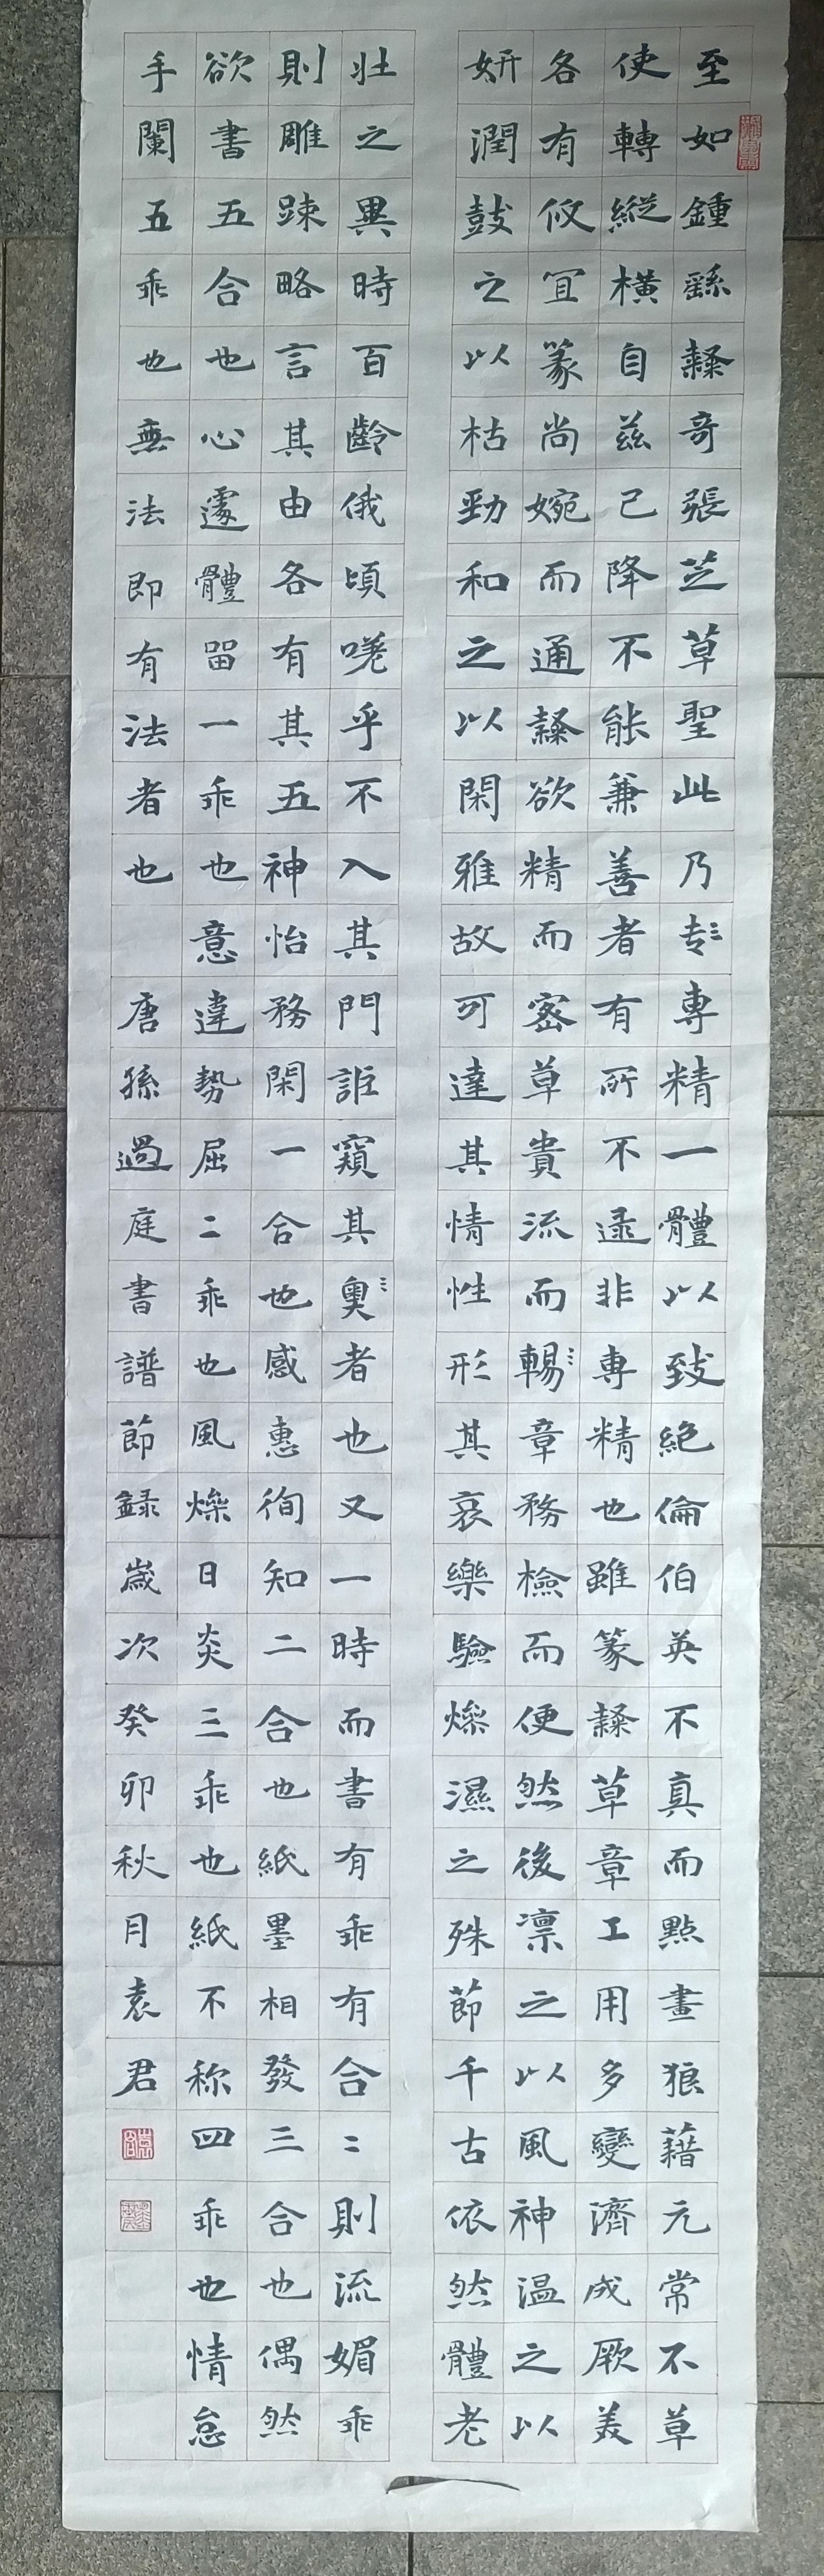 至如鍾繇隸奇張芝草聖此乃专專精一體以致絕倫伯英不真而點畫狼藉元常不草
使轉縱橫自茲己降不能兼善者有所不逮非專精也雖篆隸草章工用多變濟成厥美
各有攸宜篆尚婉而通隸欲精而密草貴流而暢章務檢而便然後凛之以風神温之以
妍潤鼓之以枯勁和之以閑雅故可達其情性形其哀樂驗燥濕之殊節千古依然體老
壯之異時百齡俄頃嗟乎不入其門詎窺其奧者也又一時而書有乖有合〻則流媚乖
則雕疎略言其由各有其五神怡務閑一合也感惠徇知二合也紙墨相發三合也偶然
欲書五合也心遽體留一乖也意違勢屈二乖也風燥日炎三乖也紙不称四乖也情怠
手闌五乖也無法即有法者也 唐孫過庭書譜節録歲次癸卯秋月袁君